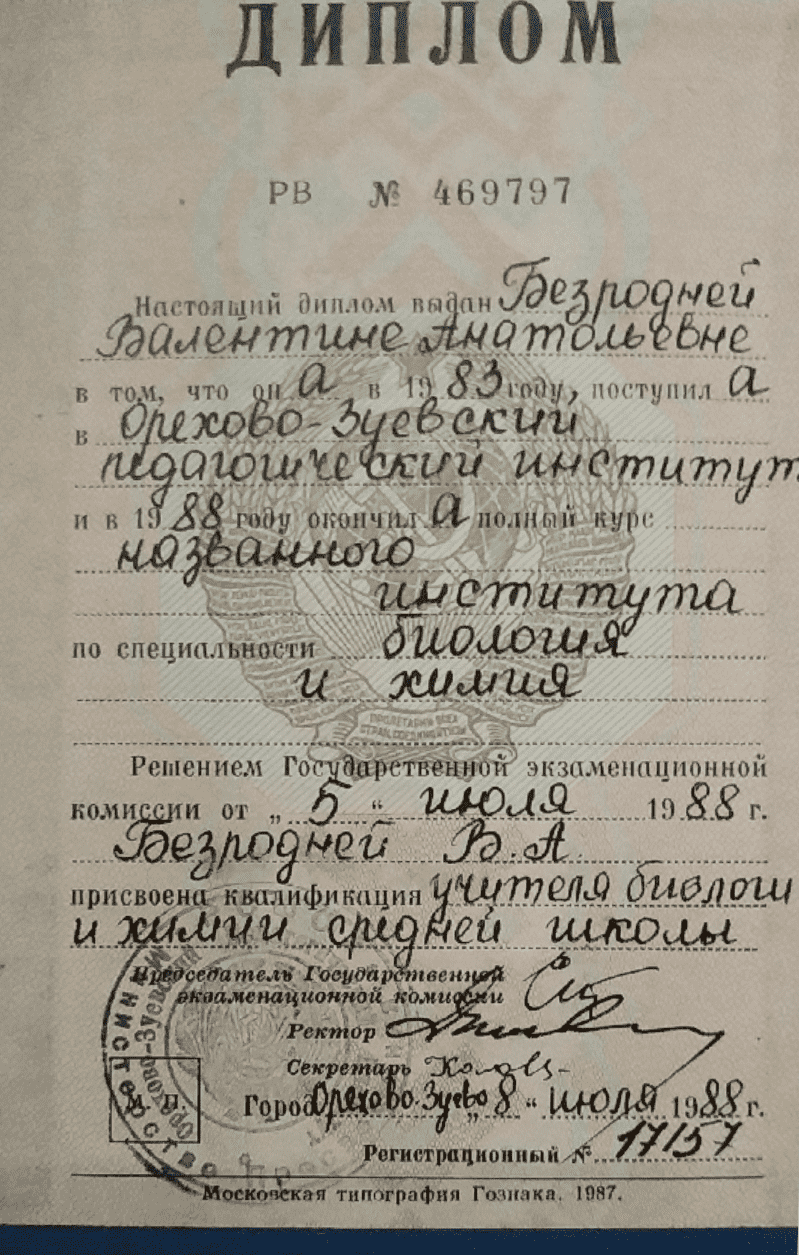 ДИПЛОМ
РВ № 469797
Настоящий диплом выдан Безродней
Валентине Анатольевне
в том, что он а в 1983 году, поступил а
в Орехово-Зуевский
педагогический институт
и в 1988 году окончил а полный курс
названного
института
по специальности биология
и химия
ПРОЛЕТАРИИ ВСЕХ
СТРАН, СОЕДИНЯЙТЕСЬ!
Решением Государственной экзаменационной
комиссии от „5“ июля 1988 г.
Безродней В.А.
присвоена квалификация учителя биологи
и химии средней школы
Председатель Государственной
экзаменационной комиссии
Ректор
Секретарь
М. П.
Город Орехово-Зуево „8“ июля 1988 г.
Регистрационный № 17157
Московская типография Гознака. 1987.